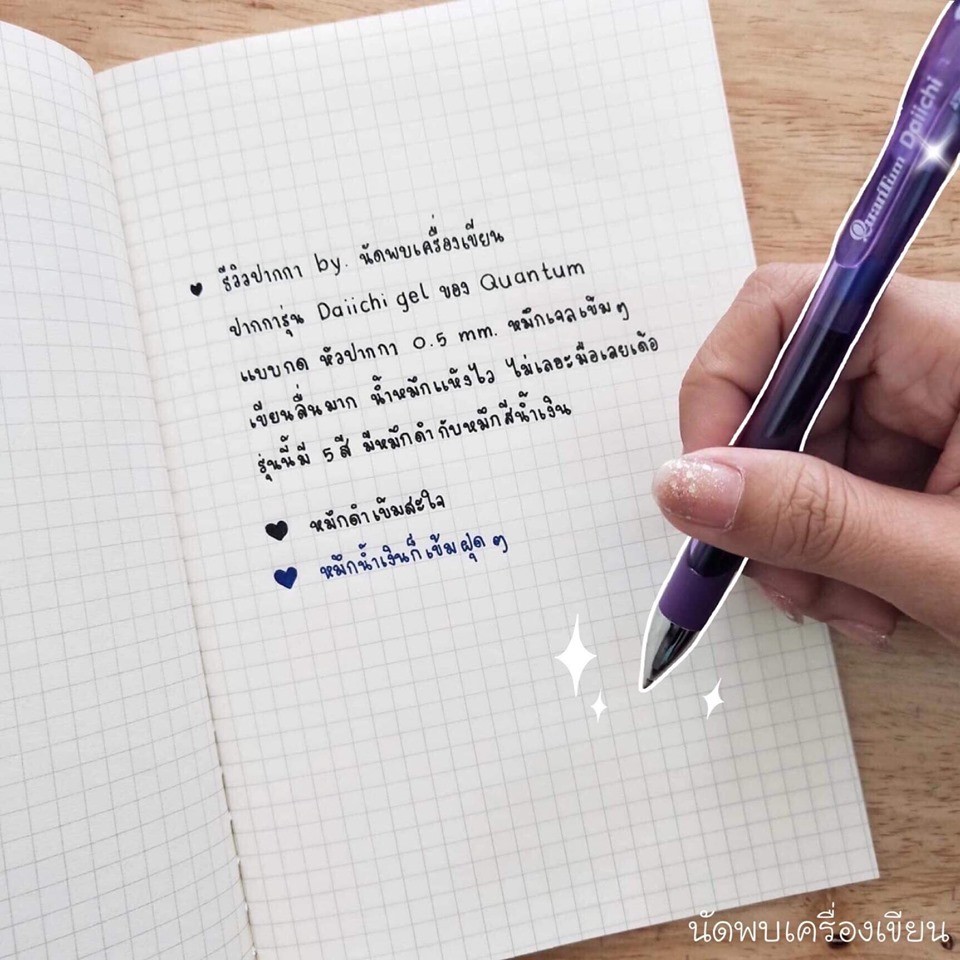 ♥ รีวิวปากกา by. นัดพบเครื่องเขียน
ปากการุ่น Daiichi gel ของ Quantum
แบบกด หัวปากกา 0.5 mm. หมึกเจลเข้มๆ
เขียนลื่นมาก น้ำหมึกแห้งไว ไม่เลอะมือเลยเด้อ
รุ่นนี้มี 5 สี มีหมึกดำกับหมึกสีน้ำเงิน
♥ หมึกดำเข้มสะใจ
♥ หมึกน้ำเงินก็เข้มฝุดๆ
Quantum Daiichi
นัดพบเครื่องเขียน